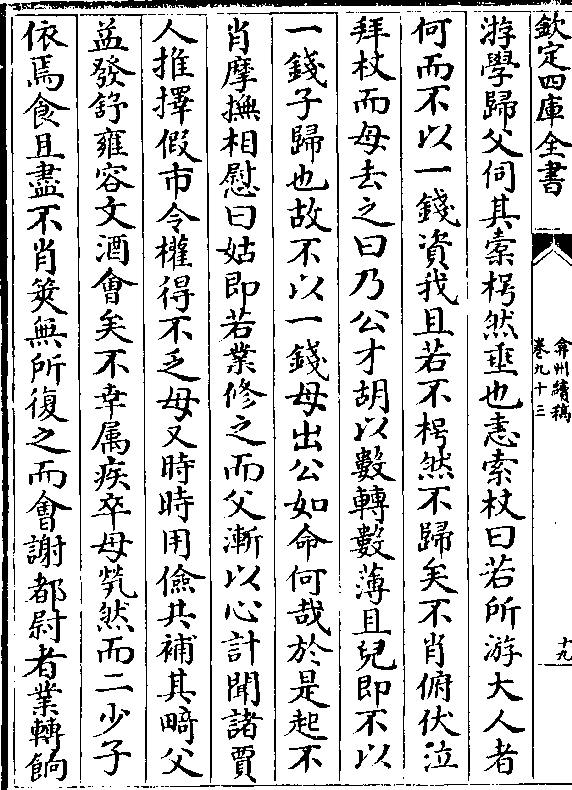 欽定四庫全書
弇州續稿
卷九十三
十九
游學歸父伺其橐枵然垂也恚索杖曰若所游大人者
何而不以一錢資我且若不枵然不歸矣不肖俯伏泣
拜杖而母去之曰乃公才胡以數轉數薄且兒即不以
一錢子歸也故不以一錢母出公如命何哉於是起不
肖摩撫相慰曰姑即若業修之而父漸以心計聞諸賈
人推擇假市令權得不乏母又時時用儉共補其畸父
益發舒雍容文酒會矣不幸属疾卒母煢然而二少子
依焉食且盡不肖筴無所復之而會謝都尉者業轉餉